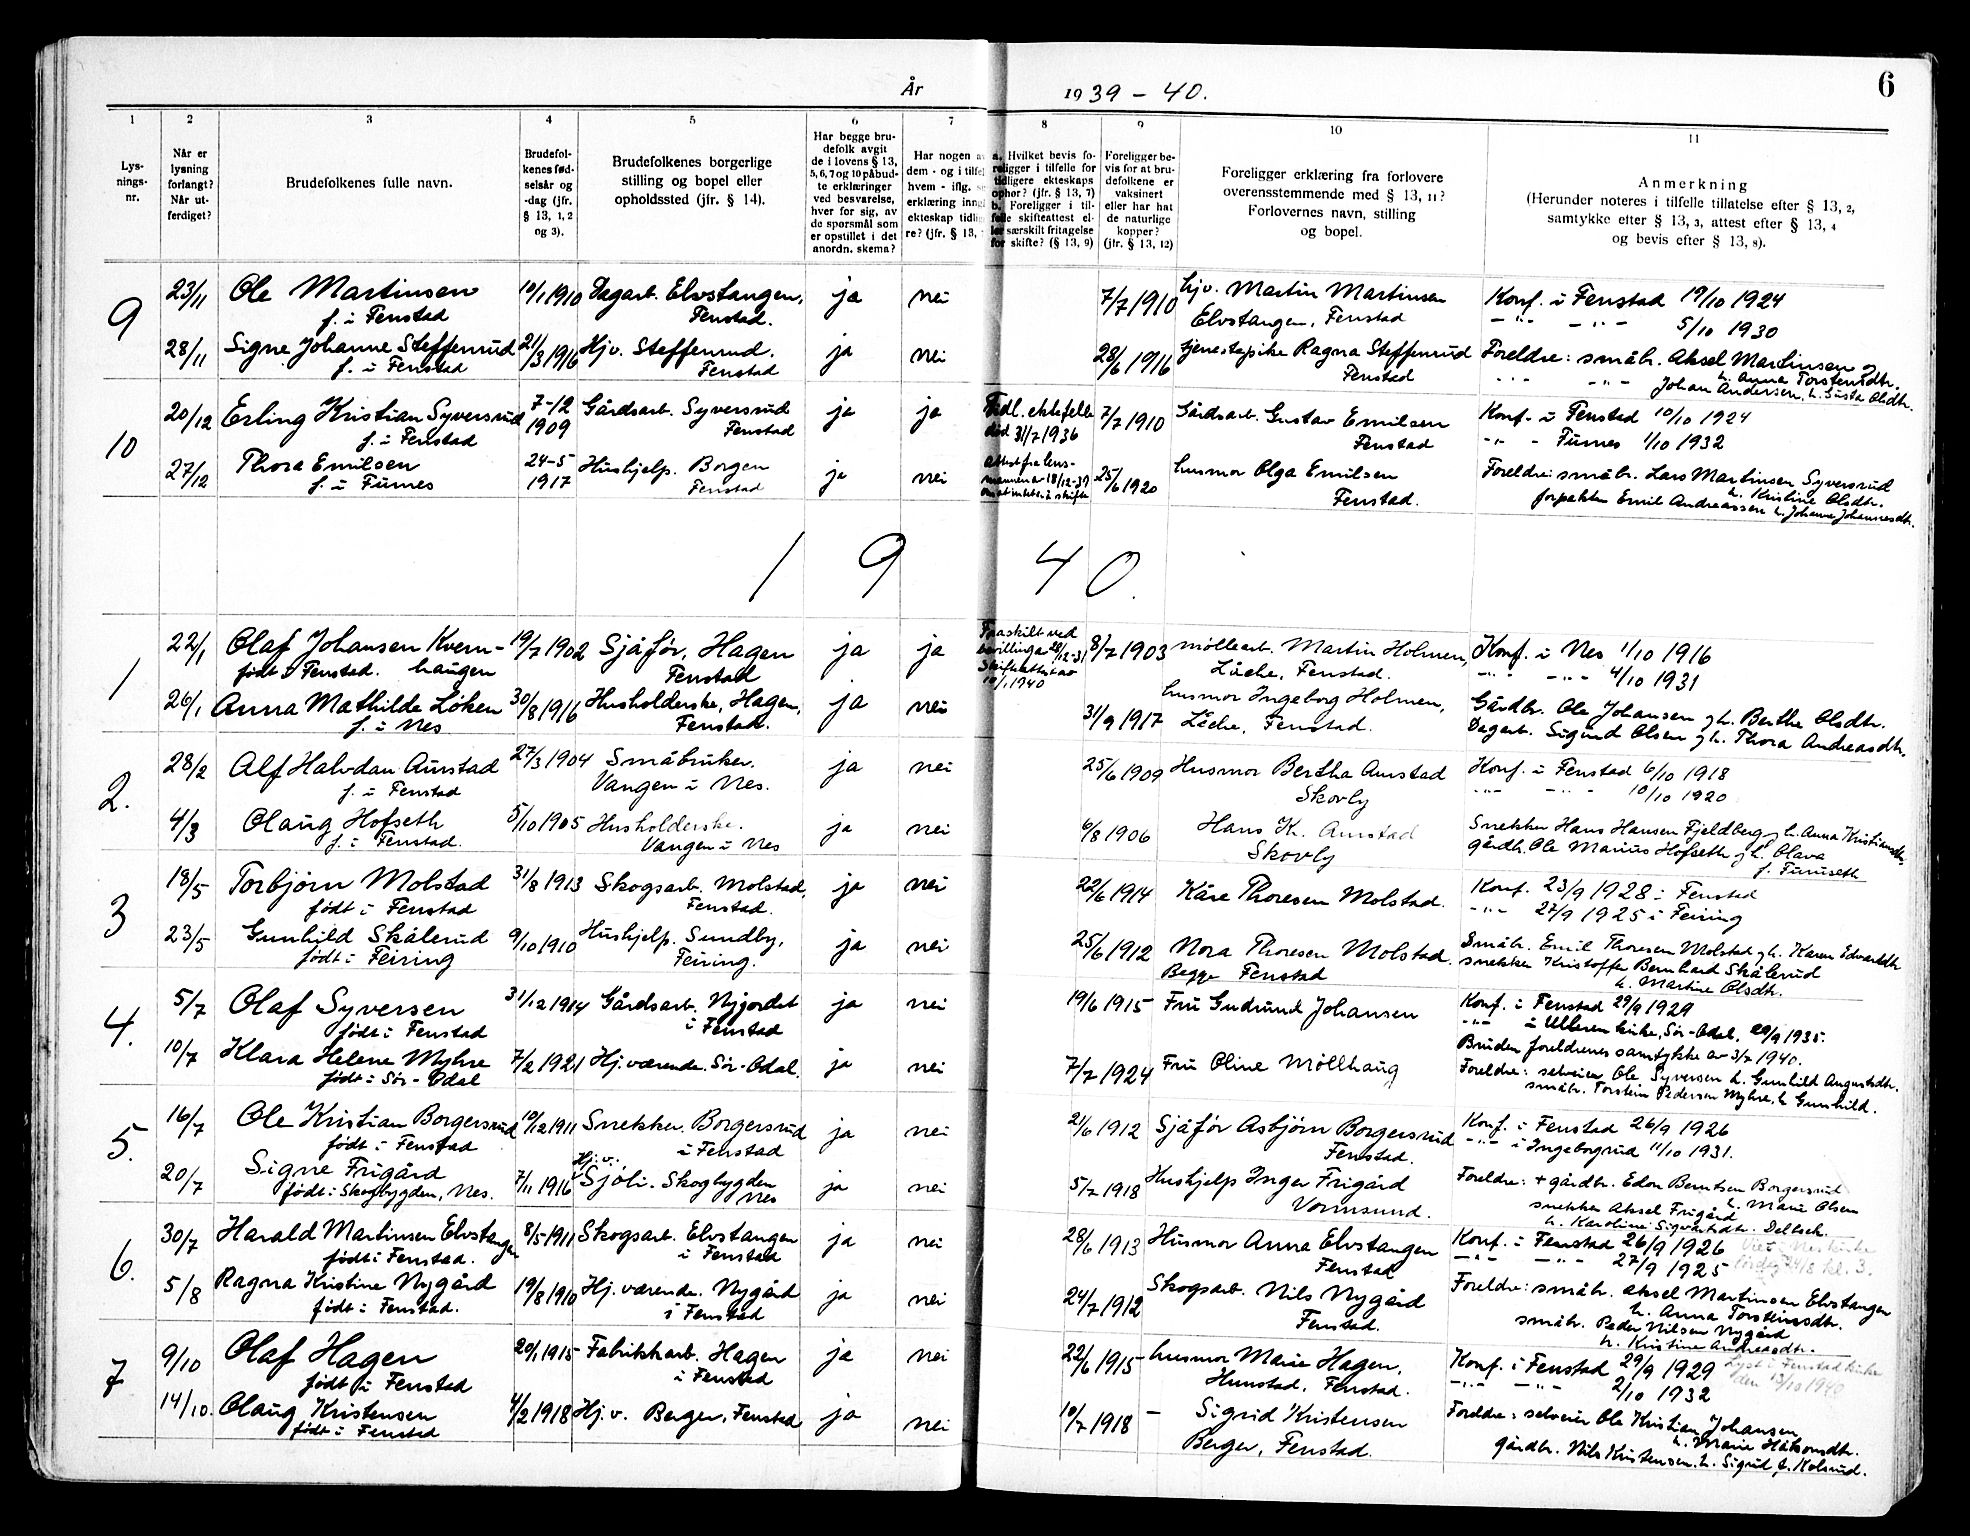 År 1939 – 40.
6
1 2 3 4 5 6 7 8 9 10 11
Lys-
nings-
nr.
Når er
lysning
forlangt?
Når ut-
ferdiget?
Brudefolkenes fulle navn.
Brudefol-
kenes fød-
selsår og
-dag (jfr.
§ 13, 1, 2
og 3).
Brudefolkenes borgerlige
stilling og bopel eller
opholdssted (jfr. § 14).
Har begge bru-
defolk avgit
de i lovens § 13,
5, 6, 7 og 10 påbud-
te erklæringer
ved besvarelse,
hver for sig, av
de spørsmål som
er opstillet i det
anordn. skema?
Har nogen av
dem - og i tilfel
hvem - iflg.
erklæring inng
ekteskap tidlig
re? (jfr. § 13,
a. Hvilket bevis fo-
religger i tilfelle for
tidligere ekteskaps
ophør? (jfr. § 13, 7)
b. Foreligger i til-
felle skifteattest el-
ler særskilt fritagelse
for skifte? (§ 13, 9)
Foreligger be-
vis for at bru-
defolkene er
vaksinert
eller har hat
de naturlige
kopper?
(jfr. § 13, 12)
Foreligger erklæring fra forlovere
overensstemmende med § 13, 11?
Forlovernes navn, stilling
og bopel.
Anmerkning
(Herunder noteres i tilfelle tillatelse efter § 13, 2,
samtykke efter § 13, 3, attest efter § 13, 4
og bevis efter § 13, 8).
9
23/11 Ole Martinsen 10/1 1910 Dagarb. Elvstangen, ja nei 7/7 1910 hjv. Martin Martinsen Konf. i Fenstad 19/10 1924
f. i Fenstad Fenstad. Elvstangen, Fenstad -"- -"- 5/10 1930
28/11 Signe Johanne Steffenrud 21/3 1916 Hjv. Steffenrud. ja nei 28/6 1916 tjenestepike Ragna Steffenrud Foreldre: småbr. Aksel Martinsen
f. i Fenstad Fenstad Fenstad h. Anna Torstensdtr.
Johan Andersen, h. Gusta Olsdtr.
10
20/12 Erling Kristian Syversrud 7-12 1909 Gårdsarb. Syversrud ja ja Tidl. ektefelle 7/7 1910 Gårdsarb. Gustav Emilsen Konf. i Fenstad 10/10 1924
f. i Fenstad Fenstad død 31/7 1936 Fenstad -"- - Furnes 1/10 1932
27/12 Thora Emilsen 24-5 1917 Hushjelp. Borgen ja nei Attest fra lens- 25/6 1920 husmor Olga Emilsen Foreldre: småbr. Lars Martinsen Syversrud
f. i Furnes Fenstad mannen av 18/12-39 Fenstad. h. Kristine Olsdtr.
forpakter Emil Andreassen h. Johanne Johannesdtr.
1 9 4 0.
1
22/1 Olaf Johansen Kvern- 19/7 1902 Sjåfør, Hagen ja ja Fraskilt ved 8/7 1903 møllearb. Martin Holmen, Konf. i Nes 1/10 1916
født i Fenstad. haugen Fenstad bevilling av 28/12-31 Låche, Fenstad. -"- -"- 4/10 1931
Skifteattest av
10/1 1940
26/1 Anna Mathilde Løken 30/8 1916 Husholderske, Hagen, ja nei 31/9 1917 husmor Ingeborg Holmen, Gårdbr. Ole Johansen og h. Berthe Olsdtr.
f. i Nes Fenstad. Låche, Fenstad. Dagarb. Sigurd Olsen og h. Thora Andreasdtr.
2.
28/2 Alf Halvdan Aurstad 27/3 1904 Småbruker. ja nei 25/6 1909 Husmor Bertha Aurstad Konf. i Fenstad 6/10 1918
f. i Fenstad Vangen i Nes. Skovly -"- -"- 10/10 1920
4/3 Olaug Hofseth 5/10 1905 Husholderske. ja nei 6/8 1906 Hans K. Aurstad Snekker Hans Hansen Fjeldberg og h. Anna Kristiansdtr.
f. i Fenstad. Vangen i Nes Skovly gårdbr. Ole Marius Hofseth og h. Olava
f. Furuseth
3
18/5 Torbjørn Molstad 31/8 1913 Skogsarb. Molstad, ja nei 22/6 1914 Kåre Thoresen Molstad. Konf. 23/9 1928 i Fenstad
født i Fenstad Fenstad. -"- 27/9 1925 i Feiring
23/5 Gunhild Skålerud 9/10 1910 Hushjelp. Sundby, ja nei 25/6 1912 Nora Thoresen Molstad. Småbr. Emil Thoresen Molstad og h. Karen Edvardsdtr
født i Feiring Feiring. Begge Fenstad snekker Kristoffer Bernhard Skålerud
h. Martine Olsdtr.
4.
5/7 Olaf Syversen 31/12 1914 Gårdsarb. Nyjordet ja nei 19/6 1915 Fru Gudrund Johansen Konf. i Fenstad 29/9 1929
født i Fenstad i Fenstad -"- i Ulleren kirke, Sør-Odal, 29/9 1935.
Bruden foreldrenes samtykke av 3/7 1940.
10/7 Klara Helene Myhre 7/2 1921 Hj. værende. Sør-Odal. ja nei 7/7 1924 Fru Oline Møllhaug Foreldre: selveier Ole Syversen h. Gunhild Augustsdtr.
født i Sør-Odal småbr. Torstein Pedersen Myhre, h. Gunhild.
5.
16/7 Ole Kristian Borgersrud 10/12 1911 Snekker. Borgersrud ja nei 21/6 1912 Sjåfør Asbjørn Borgersrud Konf. i Fenstad 26/9 1926
født i Fenstad i Fenstad Fenstad. -"- i Ingeborgrud 11/10 1931.
20/7 Signe Frigård 7/11 1916 Hj.v. Sjøli. Skogbygden ja nei 5/7 1918 Hushjelp Inger Frigård Foreldre: + gårdbr. Edon Berntsen Borgersrud
født i Skogbygden, Nes. Nes Vormsund. h. Marie Olsen
snekker Aksel Frigård
h. Karoline Sigvartsdtr.
6.
30/7 Harald Martinsen Elvstangen 8/5 1911 Skogsarb. Elvstangen ja nei 28/6 1913 Husmor Anna Elvstangen Konf. i Fenstad 26/9 1926
født i Fenstad. i Fenstad Fenstad -"- -"- 27/9 1925
5/8 Ragna Kristine Nygård 19/8 1910 Hj. værende. Nygård ja nei 24/7 1912 Skogsarb. Nils Nygård Foreldre: småbr. Aksel Martinsen Elvstangen
født i Fenstad. i Fenstad Fenstad. h. Anna Torstensdtr.
småbr. Peder Nilsen Nygård
h. Kristine Andreasdtr.
7
9/10 Olaf Hagen 20/1 1915 Fabrikkarb. Hagen ja nei 22/6 1915 husmor Marie Hagen, Konf. i Fenstad 29/9 1929 Lyst i Fenstad kirke
født i Fenstad i Fenstad Hunstad, Fenstad. -"- -"- 2/10 1932 den 13/10 1940
14/10. Olaug Kristensen 4/2 1918 Hj. v. Berger, Fenstad ja nei 10/7 1918 - Sigrid Kristensen Foreldre: selveier Ole Kristian Johansen
født i Fenstad Berger, Fenstad. h. Marie Håkonsdtr.
gårdbr. Nils Kristensen, h. Sigrid f. Kolsrud.